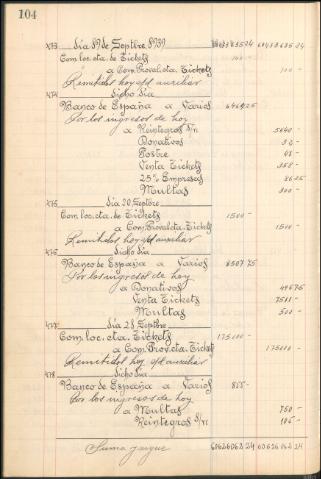 104
473 dia 19 de Septbre 1939
Com. loc. cta. de Tickets 100 —
a Com. Proval. cta. Tickets 100 —
Remitidos hoy al auxiliar
474 dicho dia
Banco de España a Varios
Por los ingresos de hoy
a Reintegros s/n 5640 —
Donativos
Postre
Venta Tickets
25% Empresas
Multas 300 —
475 dia 20 Septbre
Com. loc. cta. de Tickets 1500 —
a Com. Proval. cta. Tickets 1500 —
Remitidos hoy al auxiliar
476 dicho dia
Banco de España a Varios 8507 75
Por los ingresos de hoy
a Donativos
Venta Tickets
Multas 500 —
477 dia 21 Septbre
Com. loc. cta. Tickets 175000 —
a Com. Prov. cta. Tickets 175000 —
Remitidos hoy al auxiliar
478 dicho dia
Banco de España a Varios 855 —
Por los ingresos de hoy
a Multas 750 —
Reintegros s/n 105 —
Suma y sigue 60626062 24 60626062 24